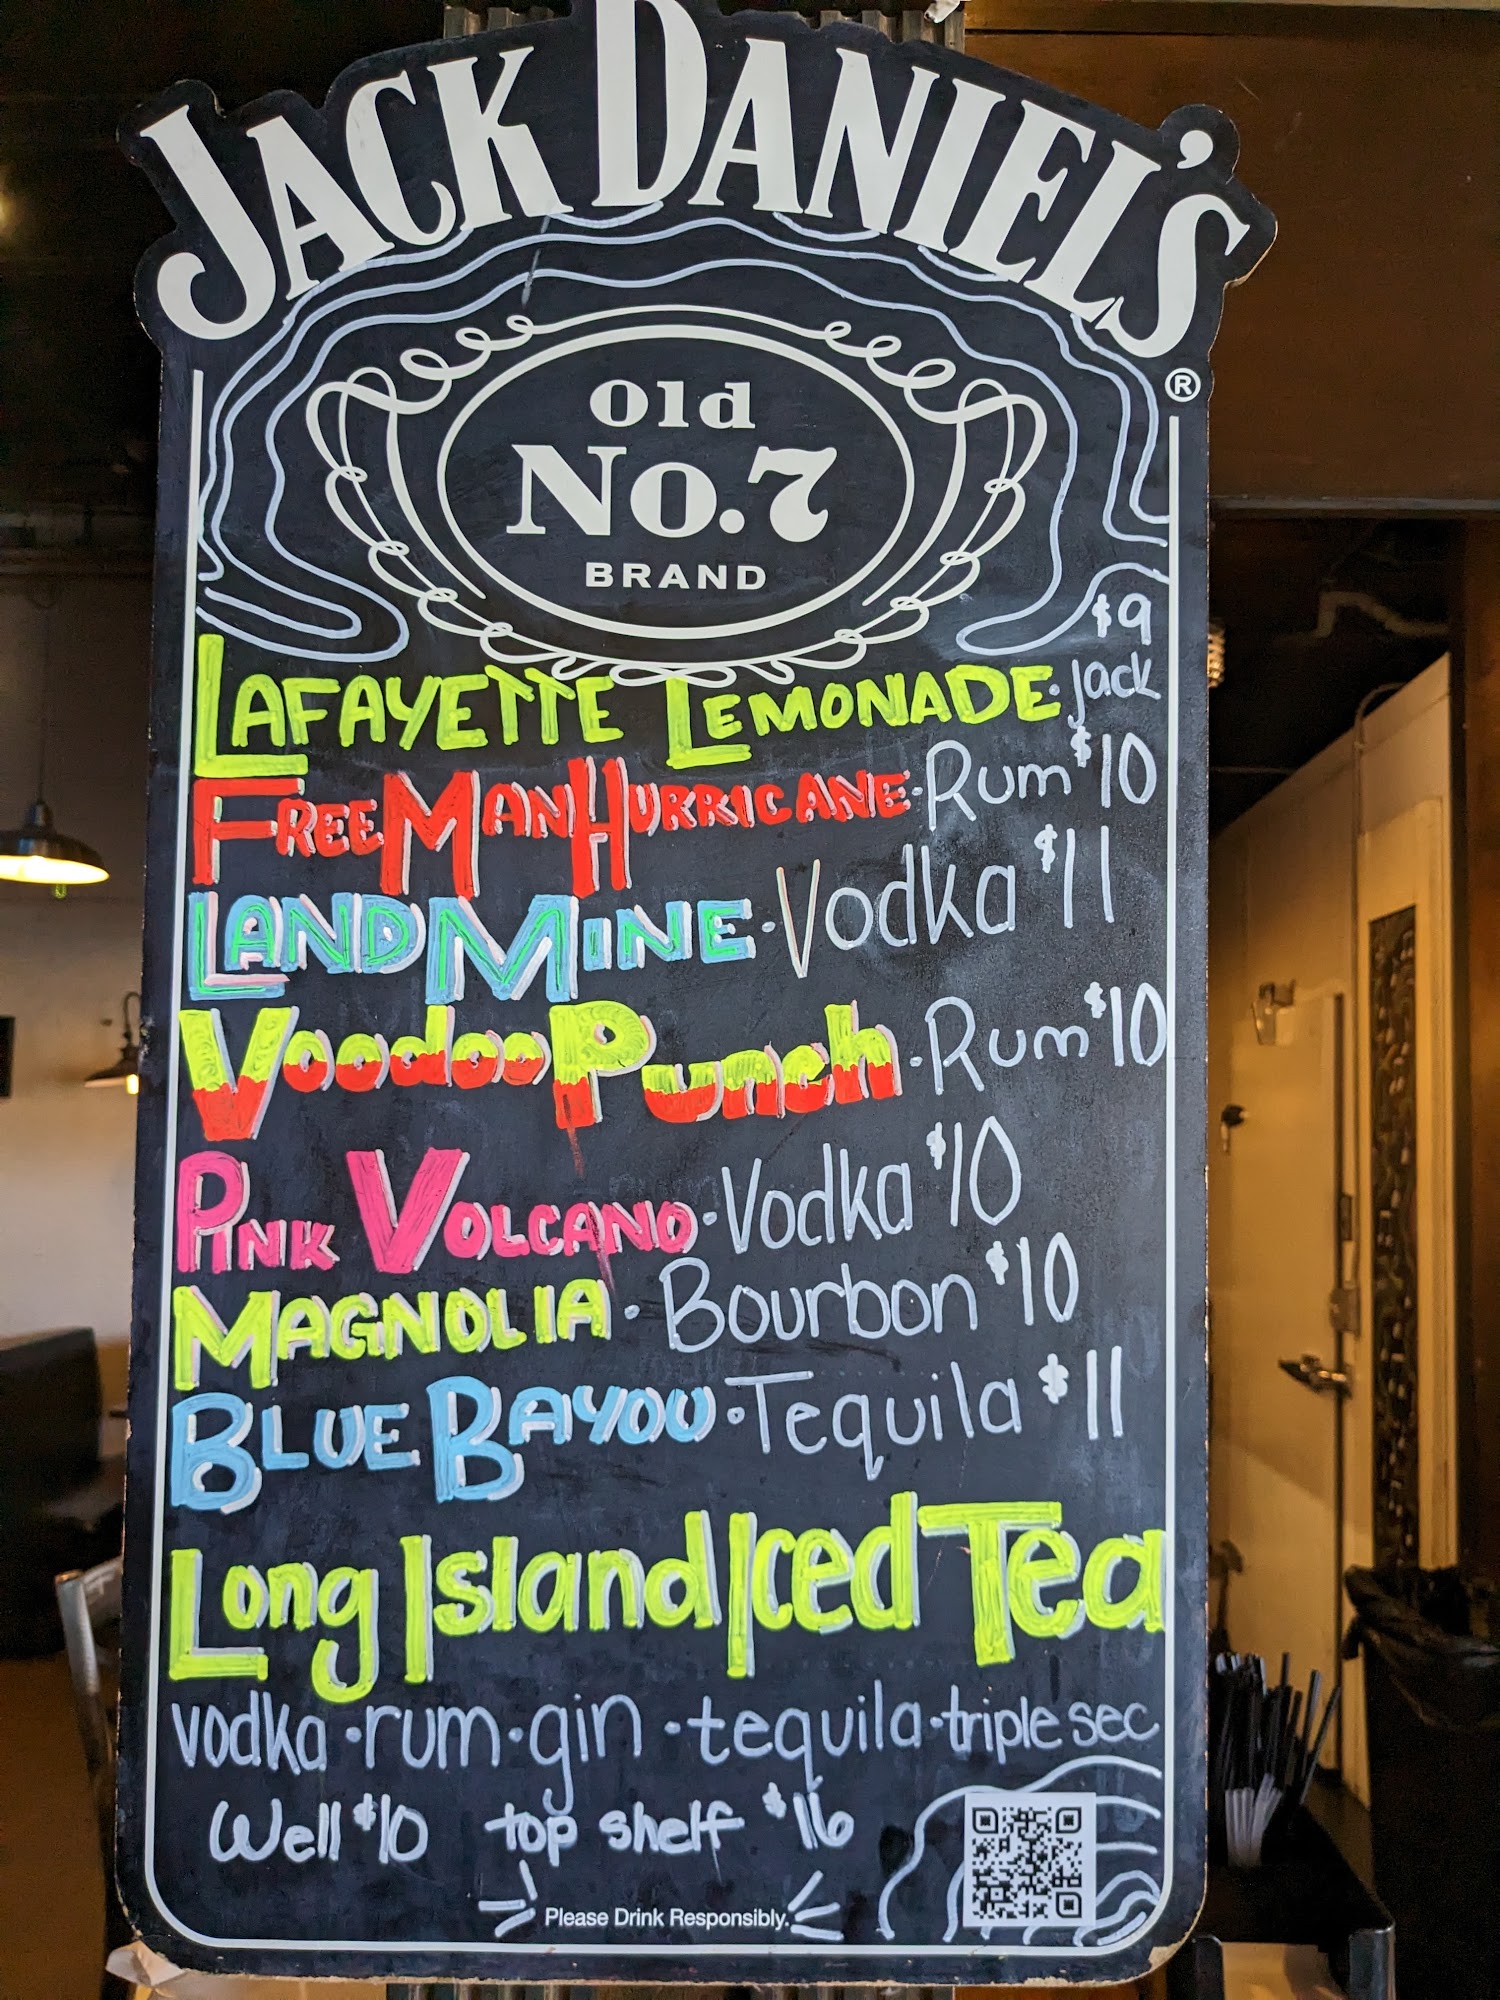 JACK DANIEL'S
®
Old
No.7
BRAND
$9
LAFAYETTE LEMONADE · Jack
FREEMAN HURRICANE · Rum $10
LAND MINE · Vodka $11
Voodoo Punch · Rum $10
PINK VOLCANO · Vodka $10
MAGNOLIA · Bourbon $10
BLUE BAYOU · Tequila $11
Long Island Iced Tea
vodka · rum · gin · tequila · triple sec
Well $10 top shelf $16
Please Drink Responsibly.